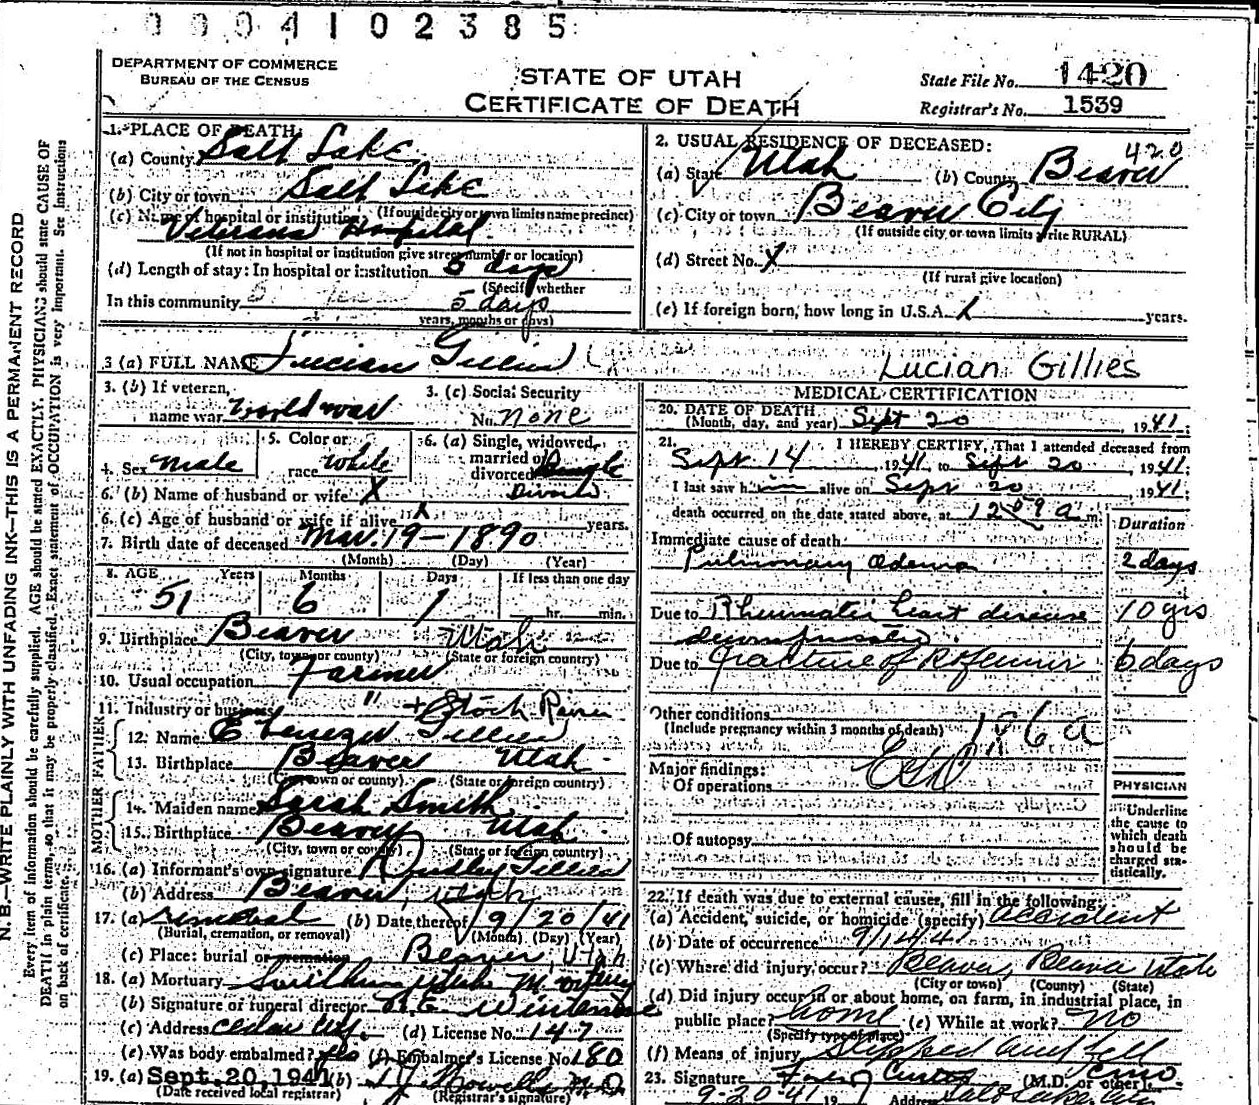 0004102385
DEPARTMENT OF COMMERCE
BUREAU OF THE CENSUS
STATE OF UTAH
CERTIFICATE OF DEATH
State File No. 1420
Registrar's No. 1539
N. B.—WRITE PLAINLY WITH UNFADING INK—THIS IS A PERMANENT RECORD
Every item of information should be carefully supplied. AGE should be stated EXACTLY. PHYSICIANS should state CAUSE OF
DEATH in plain terms, so that it may be properly classified. Exact statement of OCCUPATION is very important. See Instructions
on back of certificate.
1. PLACE OF DEATH:
(a) County Salt Lake
(b) City or town Salt Lake
(c) Name of hospital or institution: (If outside city or town limits name precinct)
Veterans Hospital
(If not in hospital or institution give street number or location)
(d) Length of stay: In hospital or institution 5 days
(Specify whether
In this community 5 days
years, months or days)
2. USUAL RESIDENCE OF DECEASED: 420
(a) State Utah (b) County Beaver
(c) City or town Beaver City
(If outside city or town limits write RURAL)
(d) Street No. X
(If rural give location)
(e) If foreign born, how long in U.S.A. years.
3 (a) FULL NAME Lucian Gillies Lucian Gillies
3. (b) If veteran, name war World War
3. (c) Social Security No. none
4. Sex Male
5. Color or race White
6. (a) Single, widowed, married or divorced Single
Divorced
6. (b) Name of husband or wife X
6. (c) Age of husband or wife if alive X years.
7. Birth date of deceased Mar. 19 - 1890
(Month) (Day) (Year)
8. AGE Years Months Days If less than one day
51 6 1 hr. min.
9. Birthplace Beaver Utah
(City, town or county) (State or foreign country)
10. Usual occupation Farmer
11. Industry or business " + Stock Raiser
FATHER
12. Name Ebenezer Gillies
13. Birthplace Beaver Utah
(City, town or county) (State or foreign country)
MOTHER
14. Maiden name Sarah Smith
15. Birthplace Beaver Utah
(City, town or county) (State or foreign country)
16. (a) Informant's own signature Dudley Gillies
(b) Address Beaver, Utah
17. (a) removal (b) Date thereof 9/20/41
(Burial, cremation, or removal) (Month) (Day) (Year)
(c) Place: burial or cremation Beaver, Utah
18. (a) Mortuary Southern Utah
(b) Signature of funeral director
(c) Address Cedar City. (d) License No. 147
(e) Was body embalmed? yes (f) Embalmer's License No. 180
19. (a) Sept. 20, 1941 (b)
(Date received local registrar) (Registrar's signature)
MEDICAL CERTIFICATION
20. DATE OF DEATH
(Month, day, and year) Sept 20 1941;
21. I HEREBY CERTIFY, That I attended deceased from
Sept 14, 1941, to Sept 20, 1941;
I last saw him alive on Sept 20, 1941;
death occurred on the date stated above, at 12 59 a m.
Duration
Immediate cause of death
Pulmonary Edema 2 days
Due to Rheumatic heart disease 10 yrs
decompensated.
Due to fracture of R femur 6 days
Other conditions
(Include pregnancy within 3 months of death) 186a
Major findings:
Of operations
Of autopsy
PHYSICIAN
Underline
the cause to
which death
should be
charged sta-
tistically.
22. If death was due to external causes, fill in the following:
(a) Accident, suicide, or homicide (specify) accident
(b) Date of occurrence 9/14/41
(c) Where did injury occur? Beaver, Beaver Utah
(City or town) (County) (State)
(d) Did injury occur in or about home, on farm, in industrial place, in
public place? home (e) While at work? no
(Specify type of place)
(f) Means of injury slipped and fell
23. Signature Curtis (M.D. or other)
9-20-41 19 Address Salt Lake City